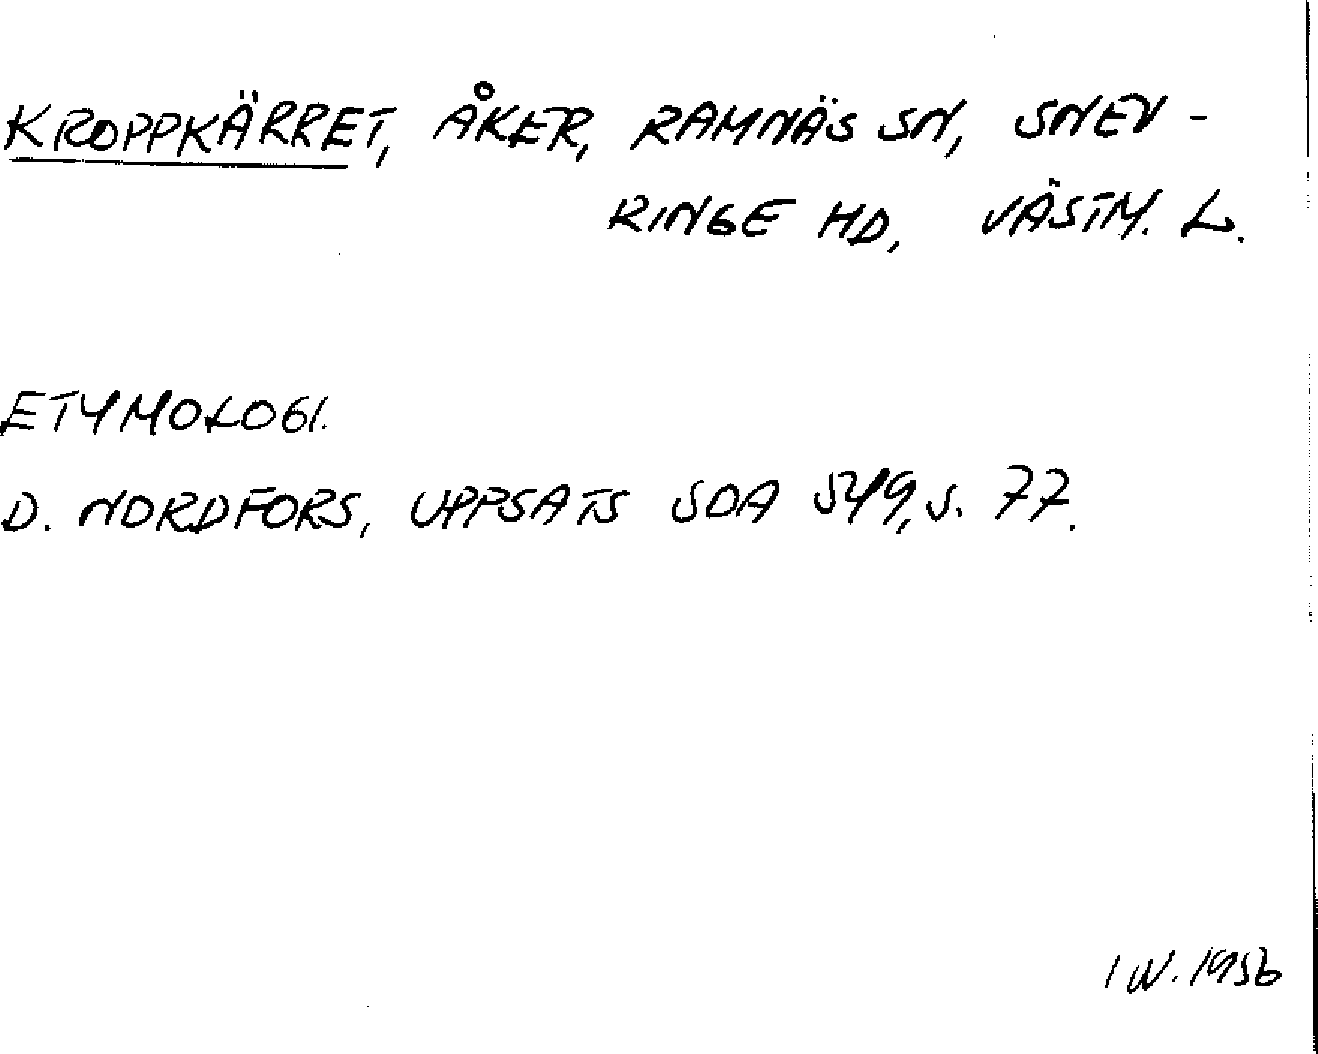 KROPPKÄRRET, ÅKER, RAMNÄS SN, SNEV-
RINGE HD, VÄSTM. L.
ETYMOLOGI.
D. NORDFORS, UPPSATS SOA 549, S. 77.
I W. 1956